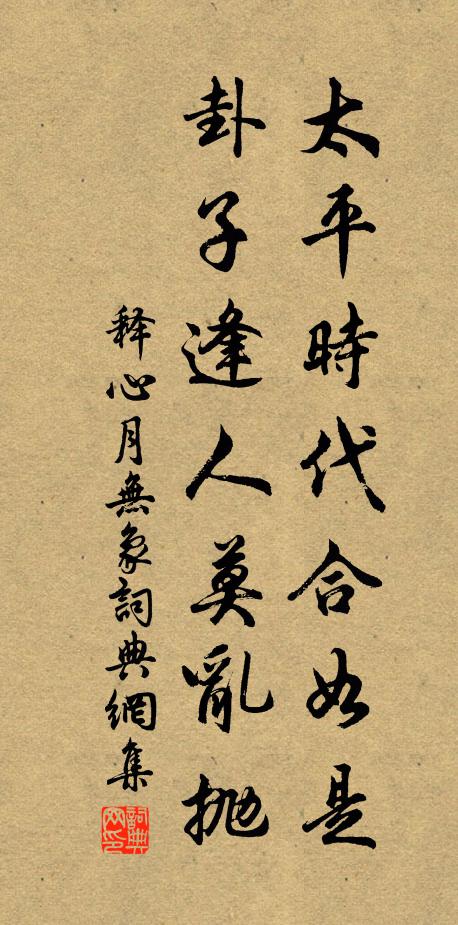 太平時代合如是
卦子逢人莫亂拋
释心月無象詞典網集
詞典网印